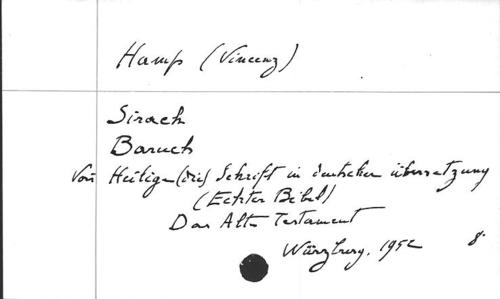 Hamp (Vincenz)
Sirach
Baruch
Von Heilige (die) Schrift in deutscher übersetzung
(Echter Bibel)
Das Alte Testament
Würzburg, 1952 8°